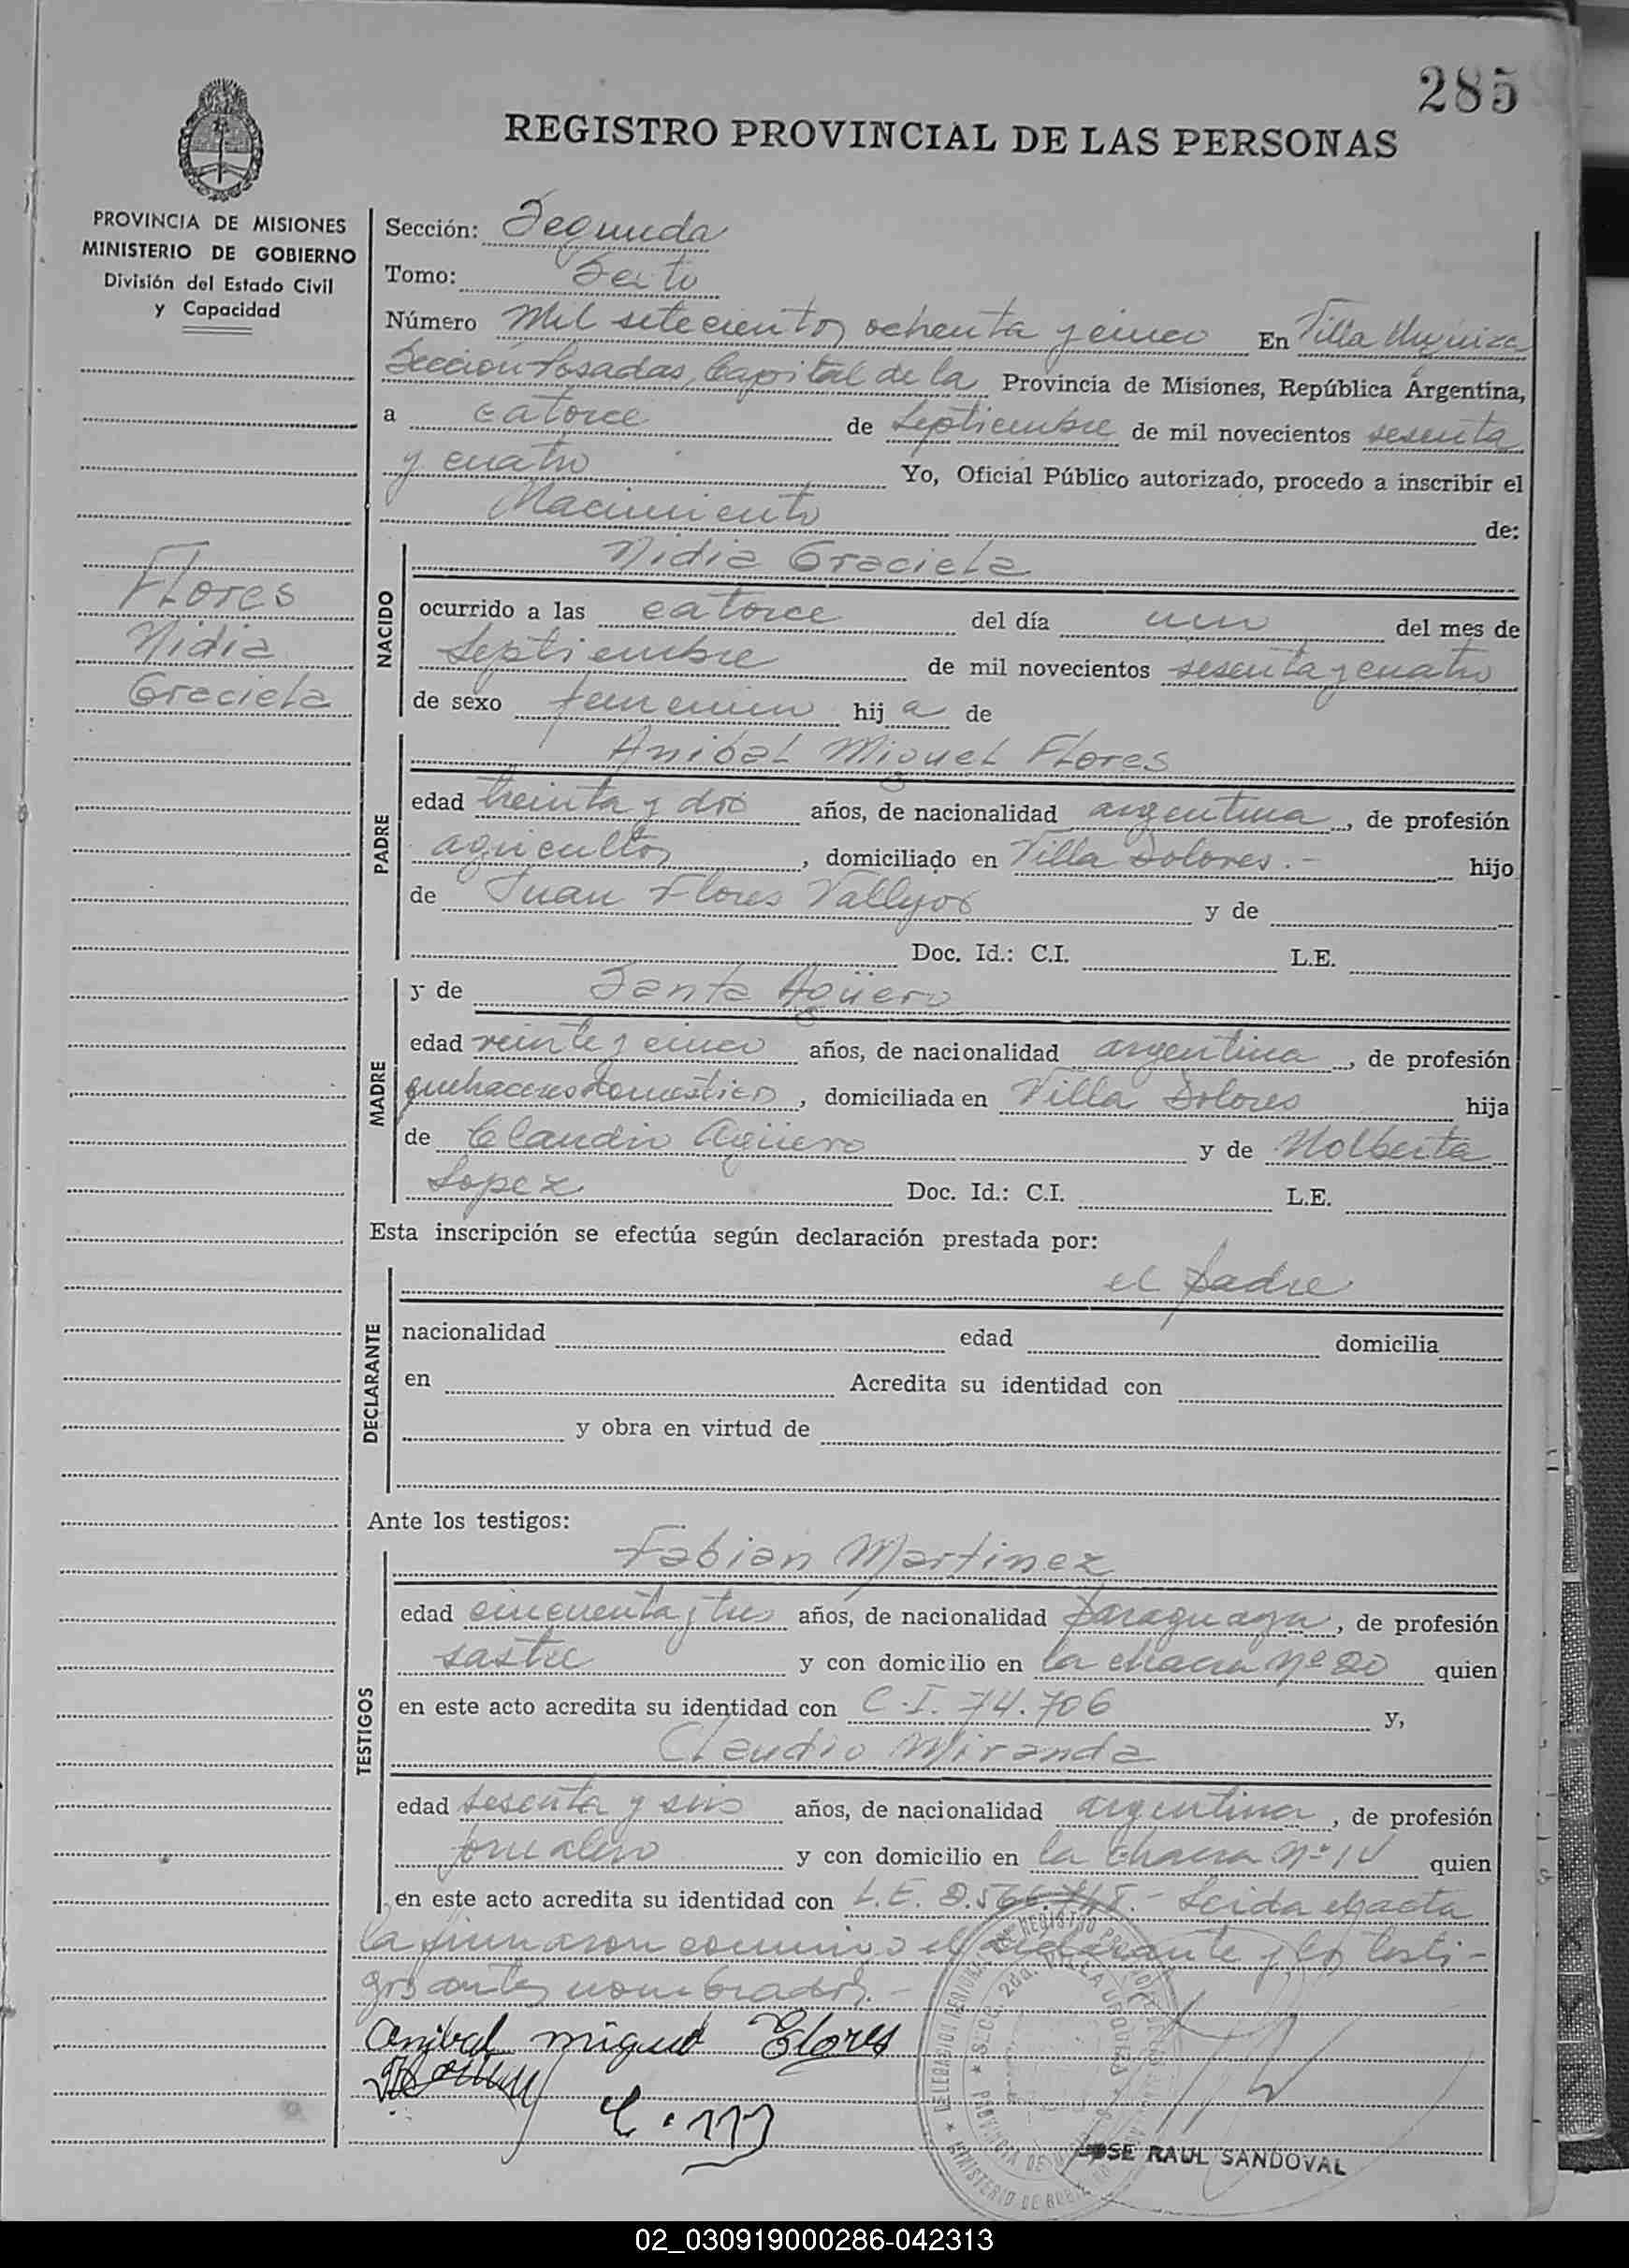 285
REGISTRO PROVINCIAL DE LAS PERSONAS
PROVINCIA DE MISIONES
MINISTERIO DE GOBIERNO
División del Estado Civil
y Capacidad
Flores
Nidia
Graciela
Sección: Segunda
Tomo: Sexto
Número Mil setecientos ochenta y cinco En Villa Urquiza
Sección Posadas, Capital de la Provincia de Misiones, República Argentina,
a catorce de Septiembre de mil novecientos sesenta
y cuatro Yo, Oficial Público autorizado, procedo a inscribir el
Nacimiento de:
NACIDO
Nidia Graciela
ocurrido a las catorce del día uno del mes de
Septiembre de mil novecientos sesenta y cuatro
de sexo femenino hij a de
PADRE
Anibal Miguel Flores
edad treinta y dos años, de nacionalidad argentina, de profesión
agricultor, domiciliado en Villa Dolores.- hijo
de Juan Flores Vallejos y de
Doc. Id.: C.I. L.E.
MADRE
y de Santa Agüero
edad veinte y cinco años, de nacionalidad argentina, de profesión
quehaceres domésticos, domiciliada en Villa Dolores hija
de Claudio Agüero y de Nolberta
Lopez Doc. Id.: C.I. L.E.
Esta inscripción se efectúa según declaración prestada por:
DECLARANTE
el padre
nacionalidad edad domicilia
en Acredita su identidad con
y obra en virtud de
Ante los testigos:
TESTIGOS
Fabian Martinez
edad cincuenta y tres años, de nacionalidad paraguaya, de profesión
sastre y con domicilio en la chacra Nº 20 quien
en este acto acredita su identidad con C.I. 74.706 y,
Claudio Miranda
edad sesenta y seis años, de nacionalidad argentina, de profesión
jornalero y con domicilio en la chacra Nº quien
en este acto acredita su identidad con L.E. Leida el acta
la firmaron conmigo el declarante y los testi-
gos antes nombrados.-
Anibal miguel Flores
JOSE RAUL SANDOVAL
02_030919000286-042313